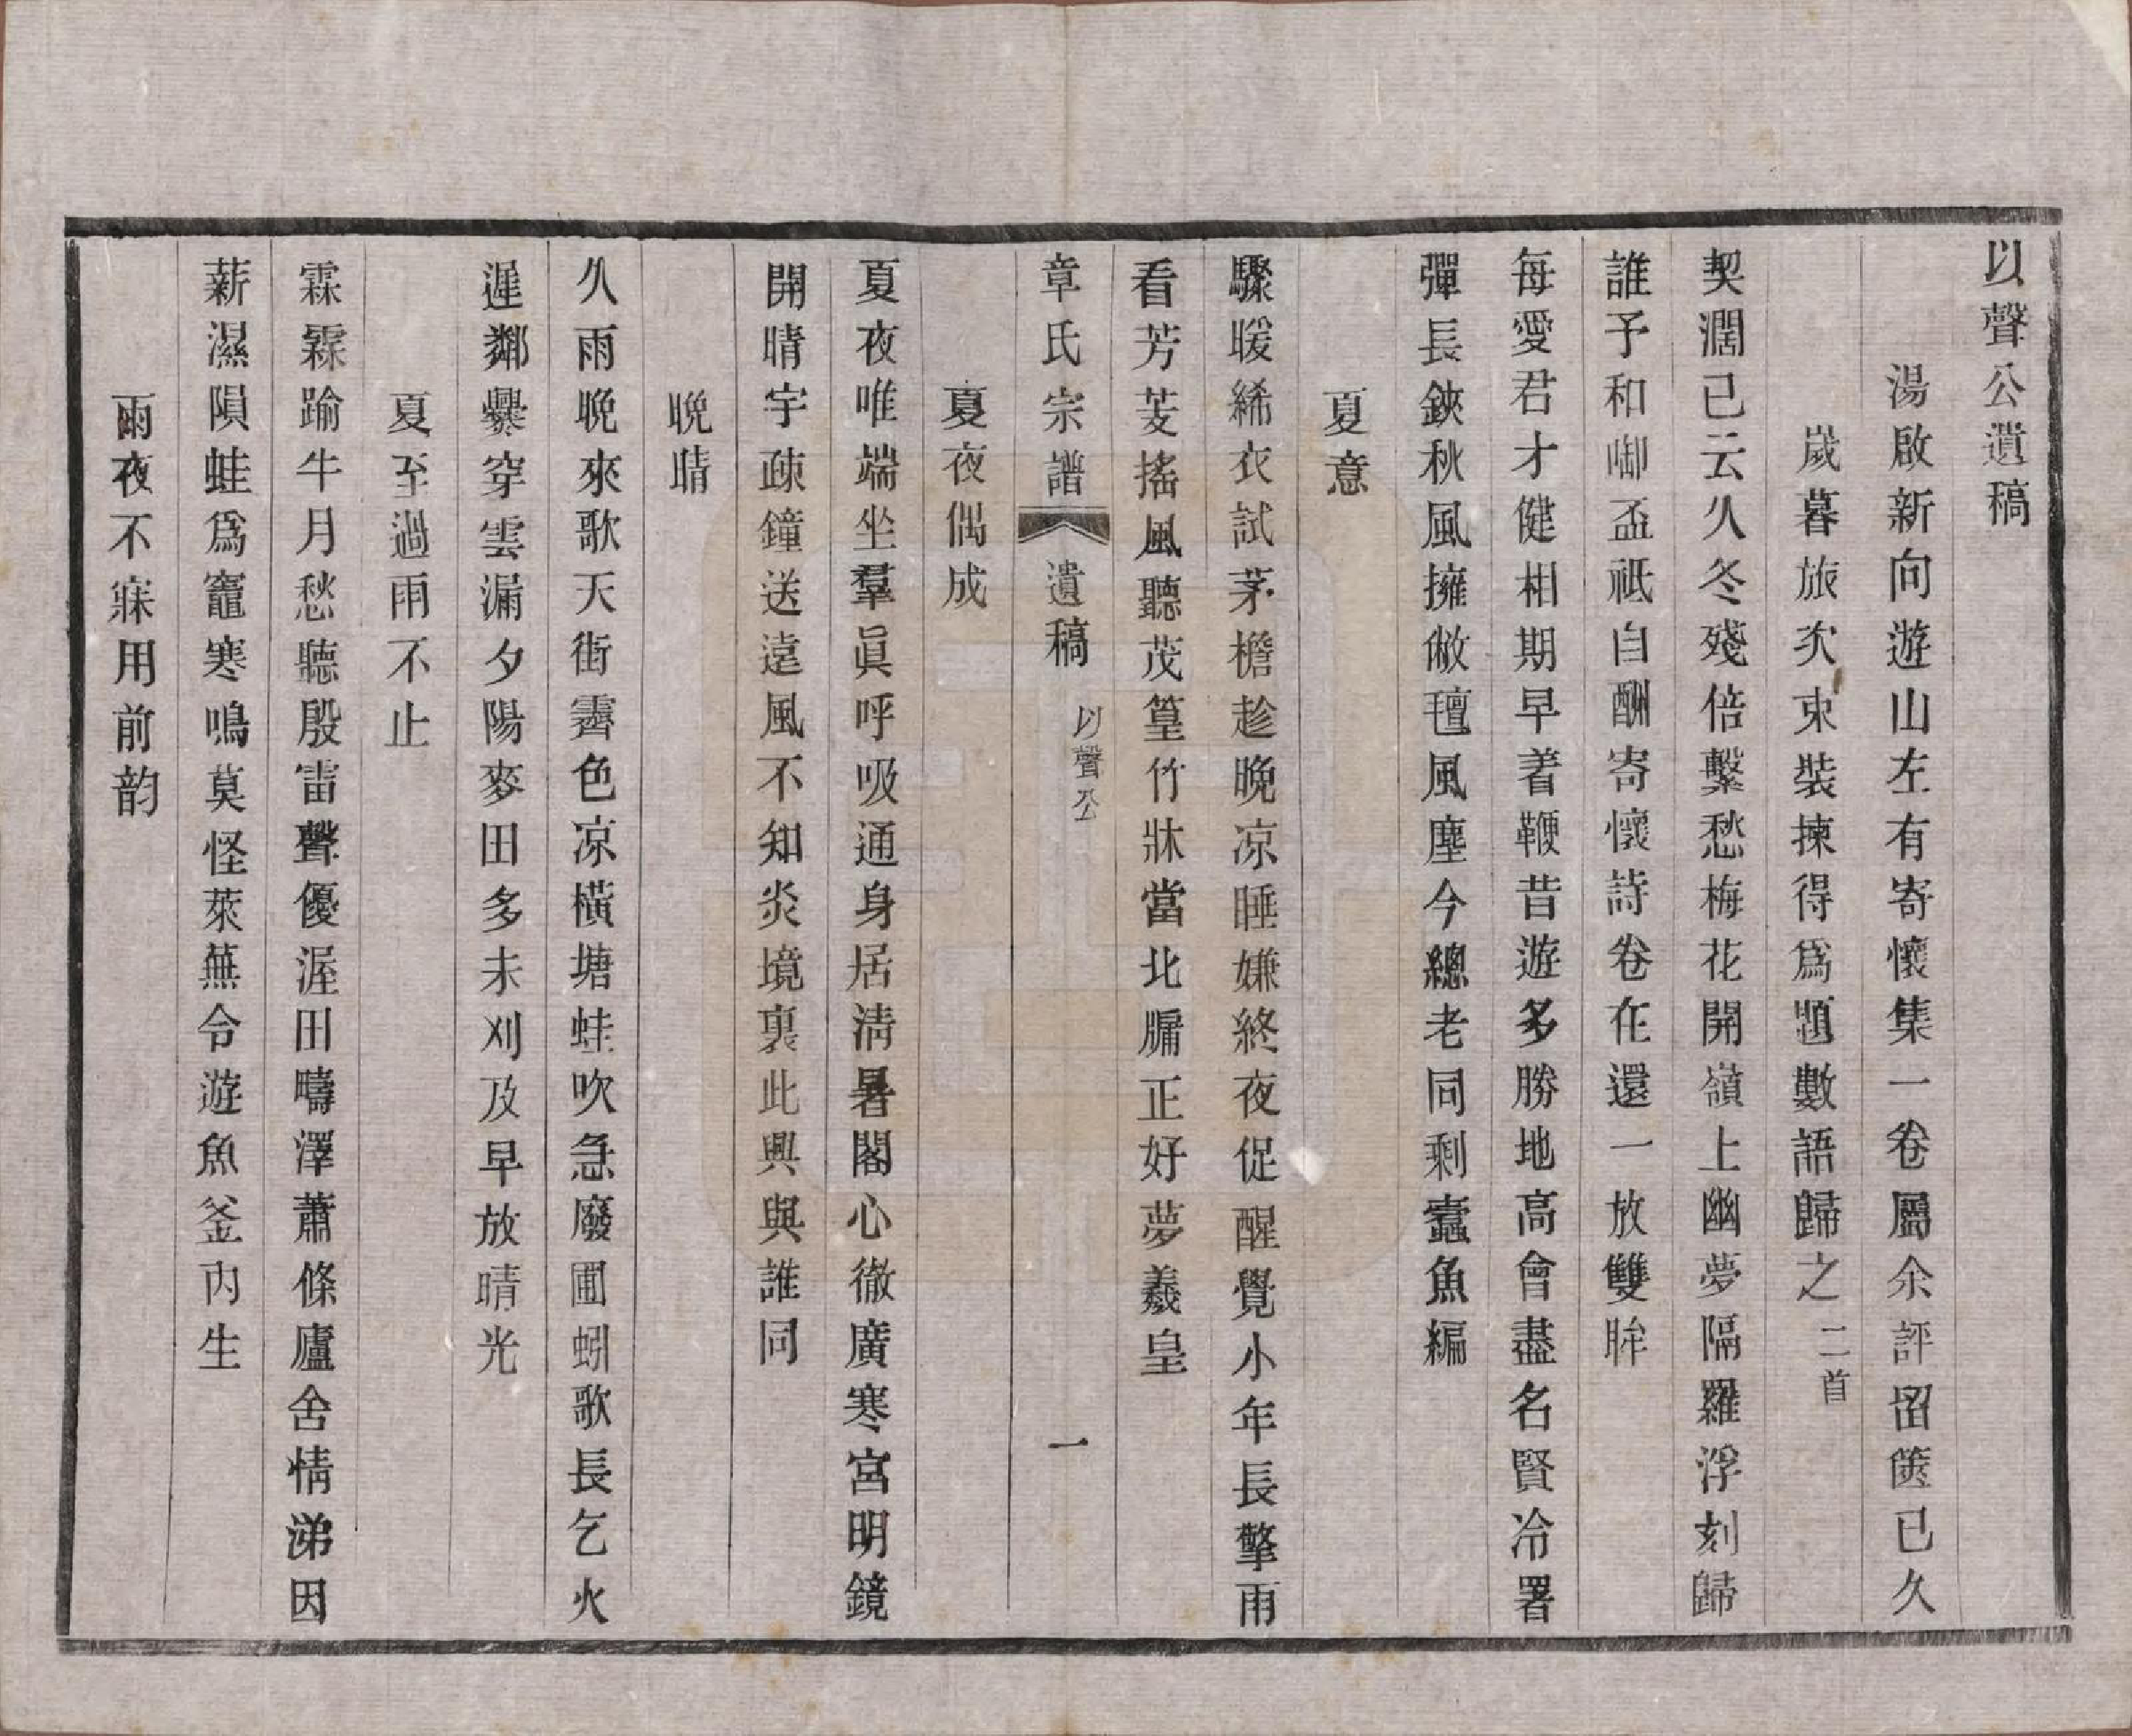 以聲公遺稿
湯啟新向遊山左有寄懷集一卷屬余評留篋已久
歲暮旅次束裝揀得爲題數語歸之二首
契濶已云久冬殘倍繫愁梅花開嶺上幽夢隔羅浮刻歸
誰予和啣盃祇自酬寄懷詩卷在還一放雙眸
每愛君才健相期早着鞭昔遊多勝地高會盡名賢冷署
彈長鋏秋風擁敝氊風塵今總老同剩蠹魚編
夏意
驟暖絺衣試茅檐趁晚凉睡嫌終夜促醒覺小年長擎雨
看芳芰搖風聽茂篁竹牀當北牖正好夢羲皇
章氏宗譜 遺稿 以聲公 一
夏夜偶成
夏夜唯端坐羣眞呼吸通身居淸暑閣心徹廣寒宮明鏡
開晴宇疎鐘送遠風不知炎境裏此興與誰同
晚晴
久雨晚來歇天街霽色凉橫塘蛙吹急廢圃蚓歌長乞火
遲鄰爨穿雲漏夕陽麥田多未刈及早放晴光
夏至過雨不止
霖霖踰半月愁聽殷雷聲優渥田疇澤蕭條廬舍情涕因
薪濕隕蛙爲竈寒鳴莫怪萊蕪令遊魚釜內生
雨夜不寐用前韵